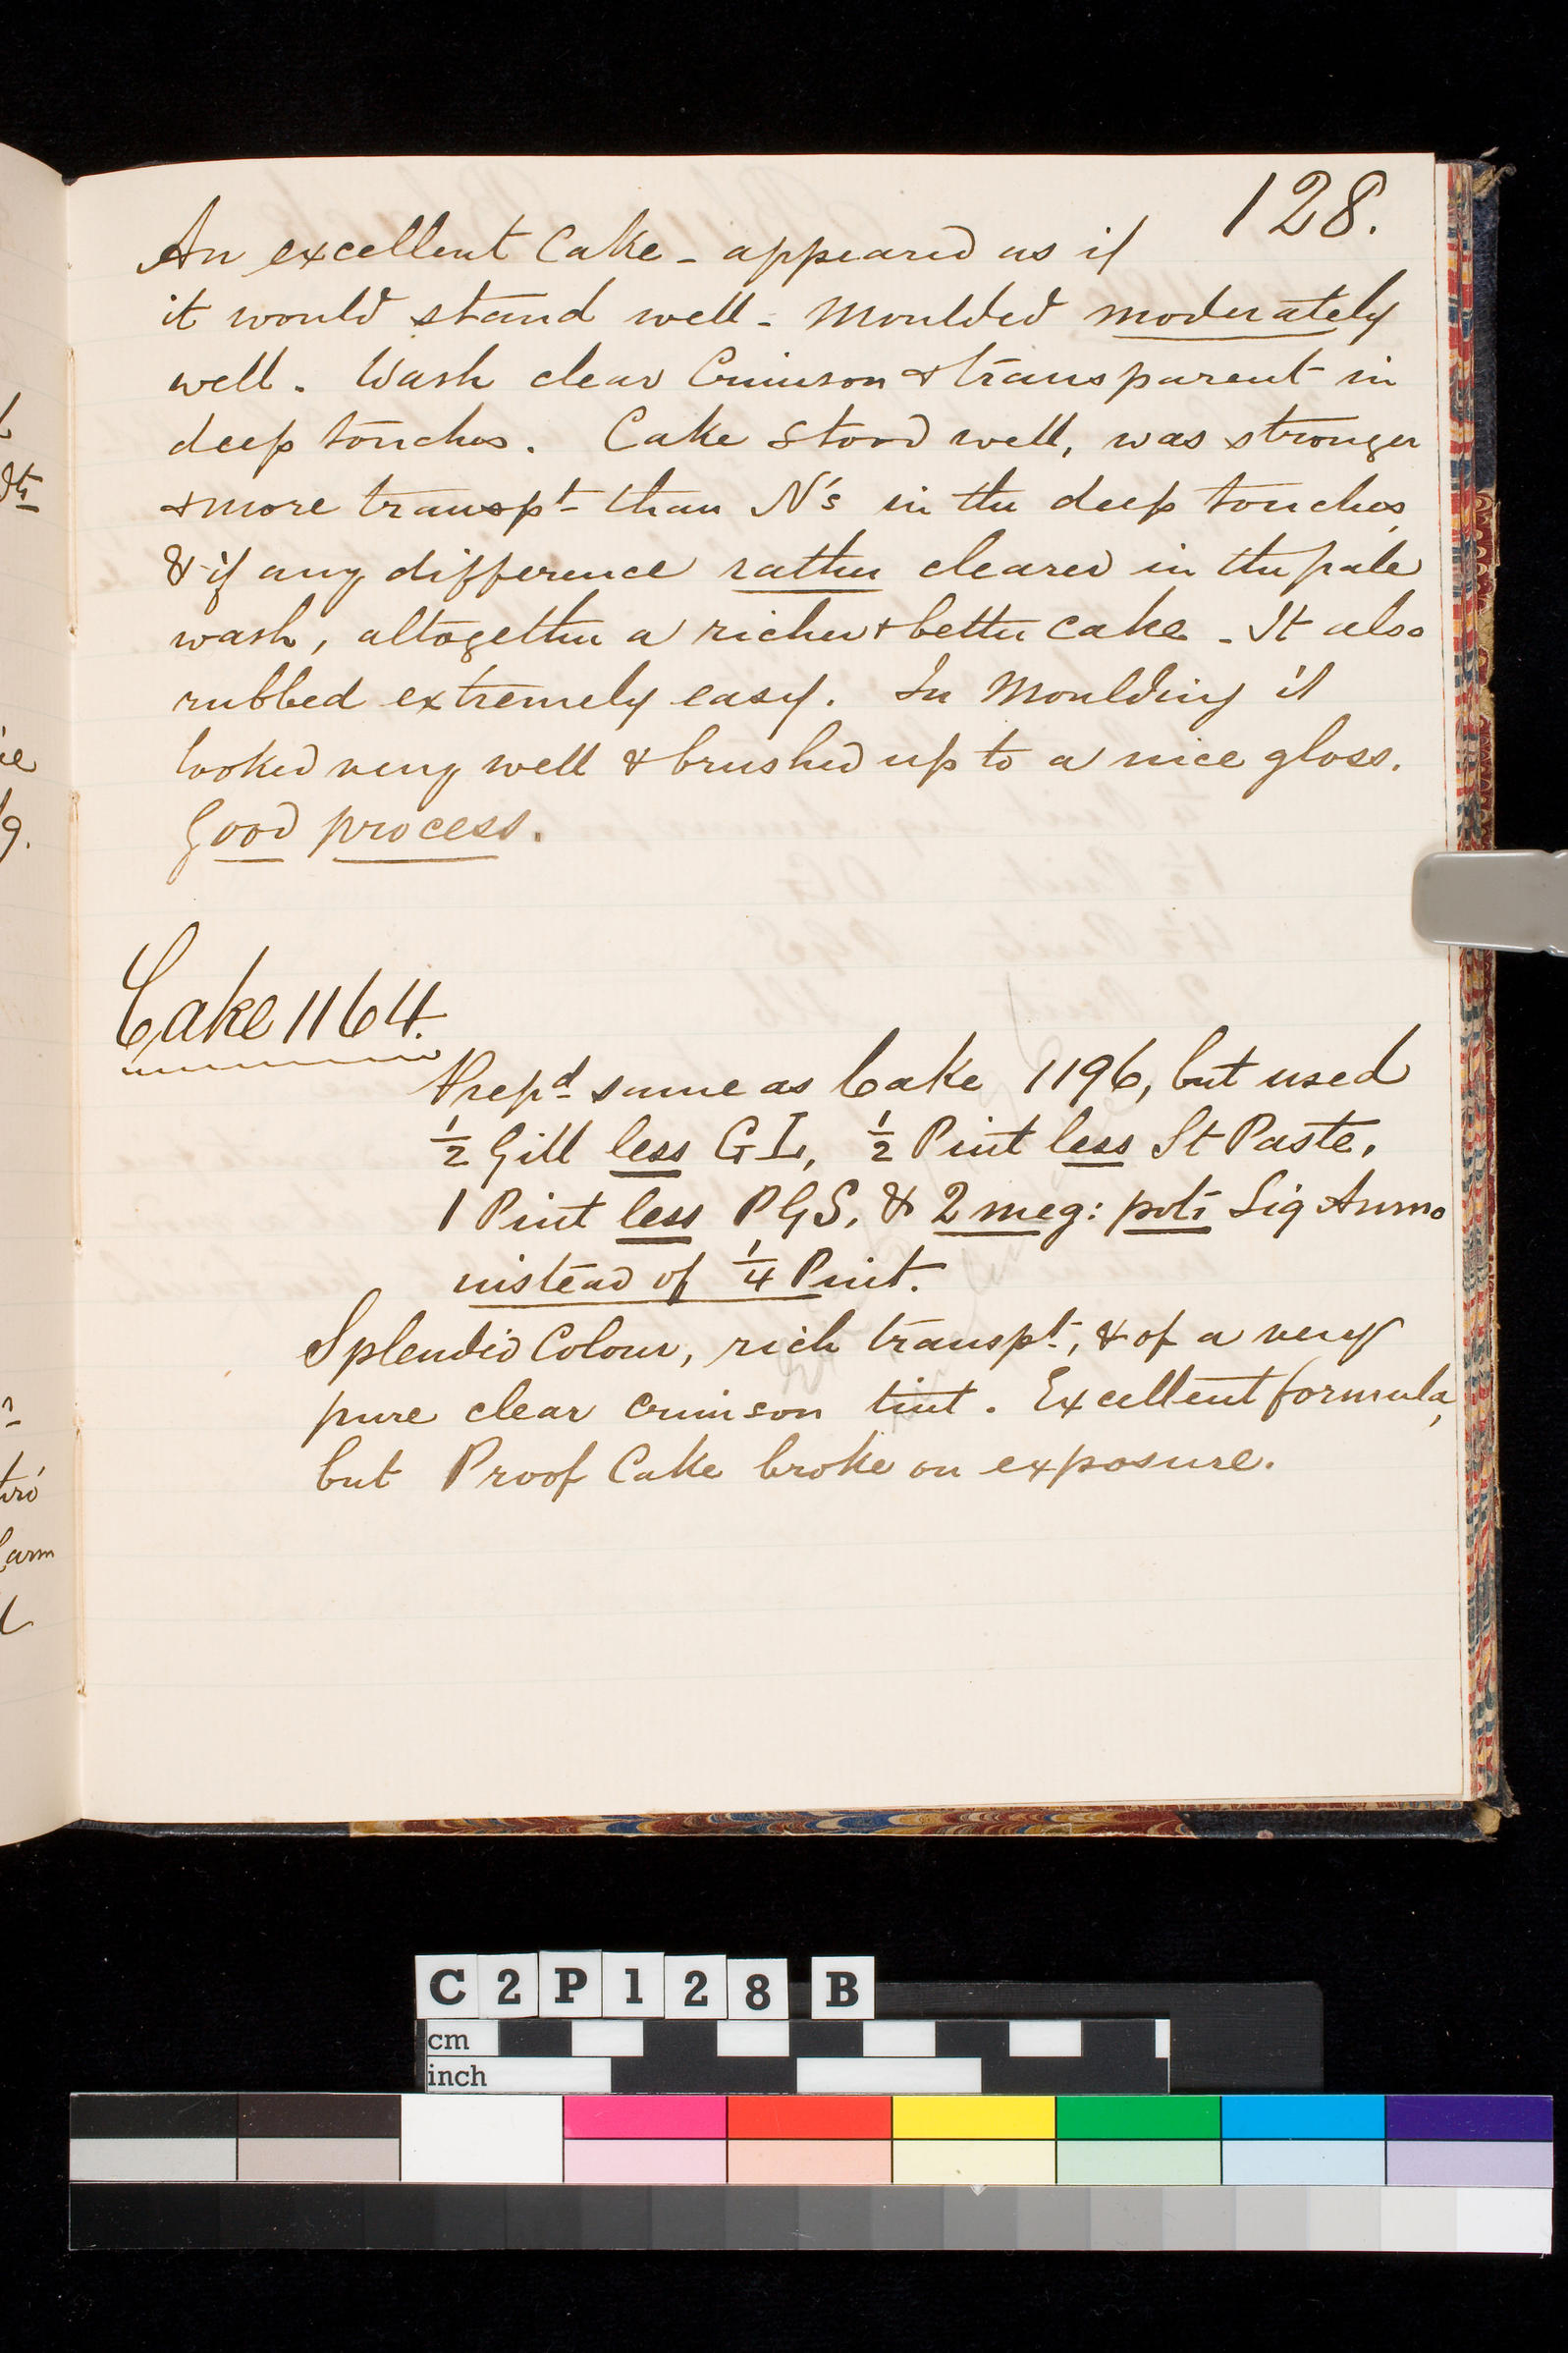 128.
An excellent Cake - appeared as if
it would stand well - Moulded moderately
well. Wash clear Crimson & transparent in
deep touches. Cake stood well, was stronger
& more transpt than N's in the deep touches,
& if any difference rather clearer in the pale
wash, altogether a richer & better cake - It also
rubbed extremely easy. In Moulding it
looked very well & brushed up to a nice gloss.
Good process.
Cake 1164.
Prepd same as Cake 1196, but used
1/2 Gill less GL, 1/2 Pint less St Paste,
1 Pint less PGS, & 2 meg: pots Liq Ammo
instead of 1/4 Pint.
Splendid Colour, rich transpt, & of a very
pure clear crimson tint. Excellent formula,
but Proof Cake broke on exposure.
C2P128 B
cm
inch